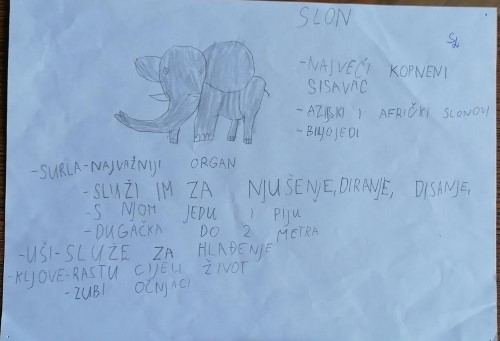 SLON
-NAJVEĆI KOPNENI
SISAVAC
-AZIJSKI I AFRIČKI SLONOVI
-BILJOJEDI
-SURLA-NAJVAŽNIJI ORGAN
-SLUŽI IM ZA NJUŠENJE, DIRANJE, DISANJE,
-S NJOM JEDU I PIJU
-DUGAČKA DO 2 METRA
-UŠI-SLUŽE ZA HLAĐENJE
-KLJOVE-RASTU CIJELI ŽIVOT
-ZUBI OČNJACI